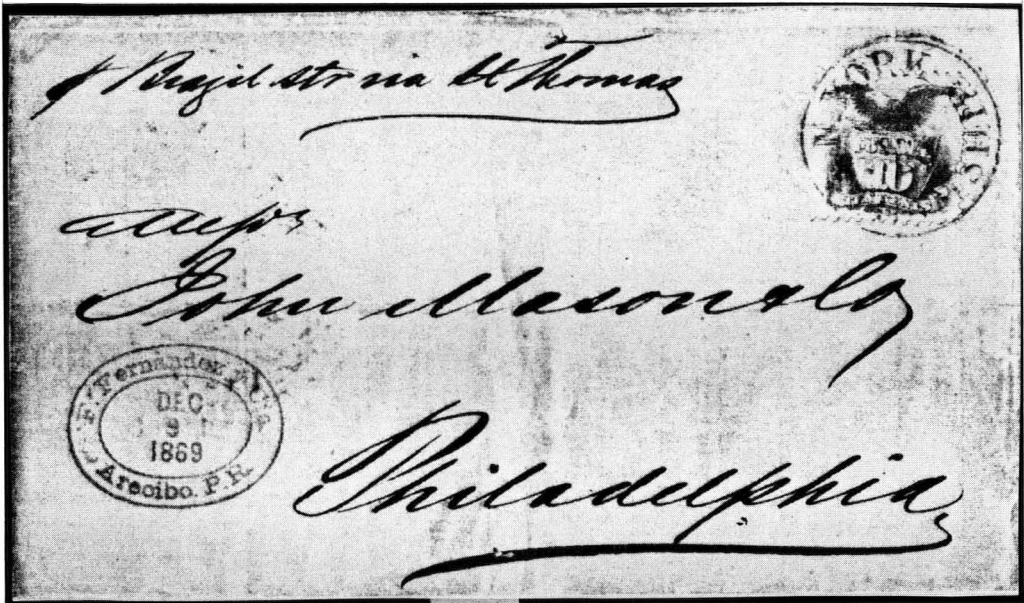 p Brazil str via St Thomas
N. YORK SHIP
10
Messrs
John Mason & Co
F. Fernandez
DEC
9
1869
Arecibo. P.R.
Philadelphia